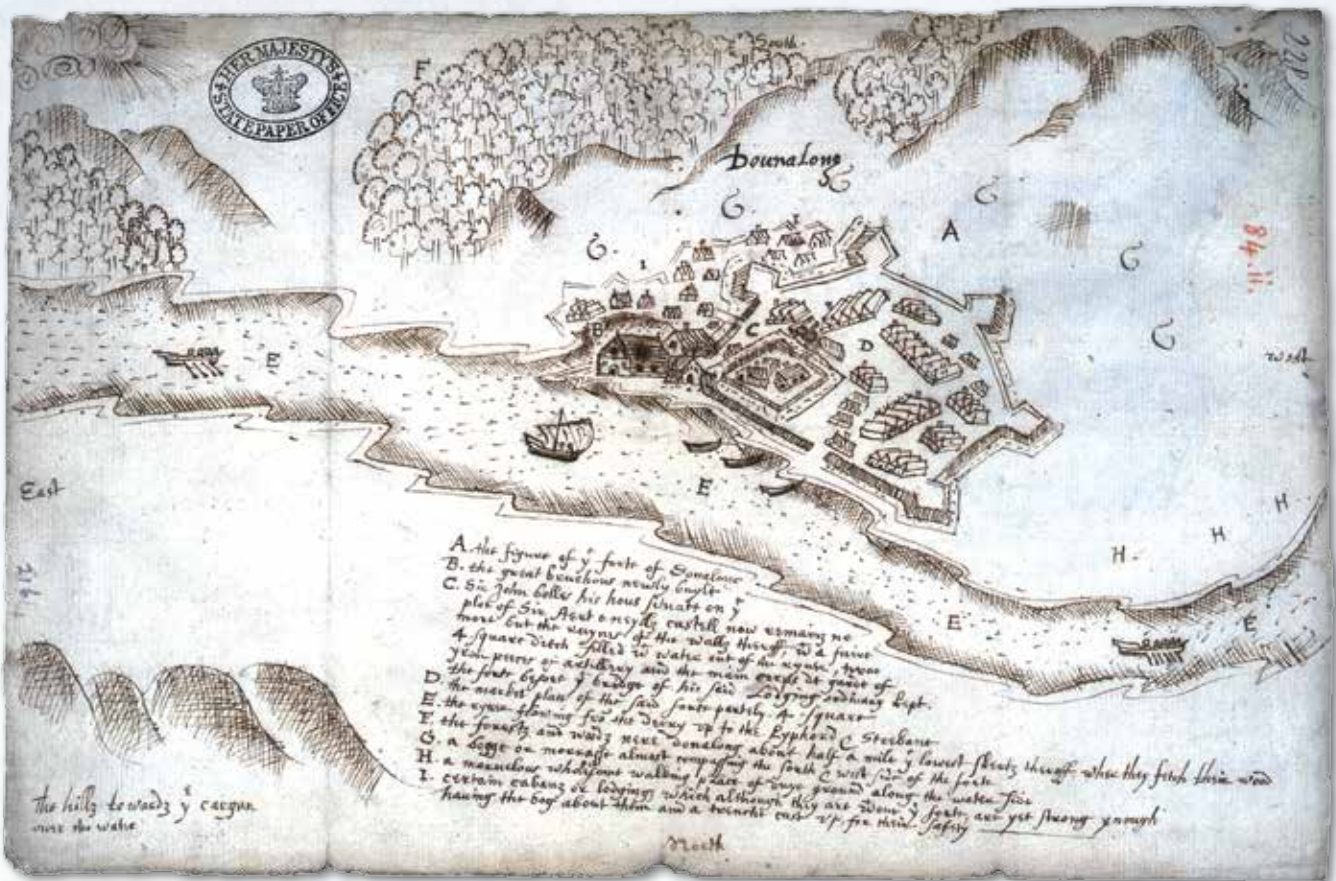 HER MAJESTY'S
STATE PAPER OFFICE
228
F
South
dounalong
G
G
G
G
G
A
84.ii.
I
B
C
D
West
E
E
East
H
H
H.
E
E
216
A. the figure of yͤ forte of Donalong
B. the great bruehous newly buylt
C. Sir John bolles his hous situatt on yͤ
plot of Sir Art oneylls castell now remayning no
more but the ruyns of the walls theroff, wͭ a faire
4 square ditch filled wͭ water out of the ryver,
peeces of artillery and the main corps de guard of
the forte before yͤ bridge of his said Lodging ordinary kept.
D. the market place of the said forte partely 4 square
E. the ryver flowing fro the derry up to the Lyfford & Sterbane
F. the forests and wodz nere donalong about half a mile yͤ lowest skirts theroff, wher they fetch their wod
G. a bogge or morrasse almost compassing the south & west side of the forte
H. a marvelous wholesome walking place of drye ground along the water side
I. certain cabans or lodgings which although they are without yͤ forte, are yet strong ynough
having the bog about them and a trenche cast up for their safety
the hills towardz yͤ cargan
over the water
North